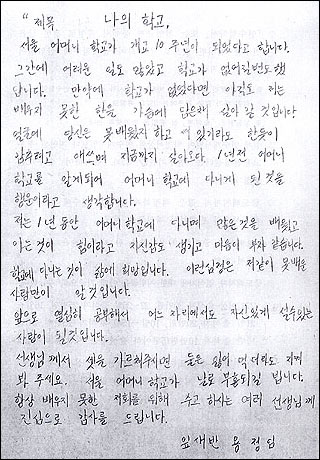 “제목   나의 학교,
서울 어머니 학교가 개교 10주년이 되었다고 합니다.
그간에 어려운 일도 많았고 학교가 없어질번도 했
답니다. 만약에 학교가 없었다면 아직도 저는
배우지 못한 한을 가슴에 담은채 살아 갈 것입니다
당신은 못배웠지 하고
감추려고 애쓰며 지금까지 살아오다 1년전 어머니
학교를 알게되어 어머니 학교에 다니게 된 것을
행운이라고 생각합니다.
저는 1년 동안 어머니 학교에 다니며 많은것을 배웠고
아는것이 힘이라고 자신감도 생기고 마음이 부자 같습니다.
학교에 다니는것이 삶에 희망입니다. 이런심정은 저같이 못배운
사람만이 알 것입니다.
앞으로 열심히 공부해서 어느 자리에서도 자신있게 설수있는
사람이 될것입니다.
선생님께서 셋을 가르쳐주시면 둘은 잃어 먹더라도 지켜
봐 주세요. 서울 어머니 학교가 날로 부흥되길 빕니다.
항상 배우지 못한 저희를 위해 수고 하시는 여러 선생님께
진심으로 감사를 드립니다.
잎새반 용 정 님